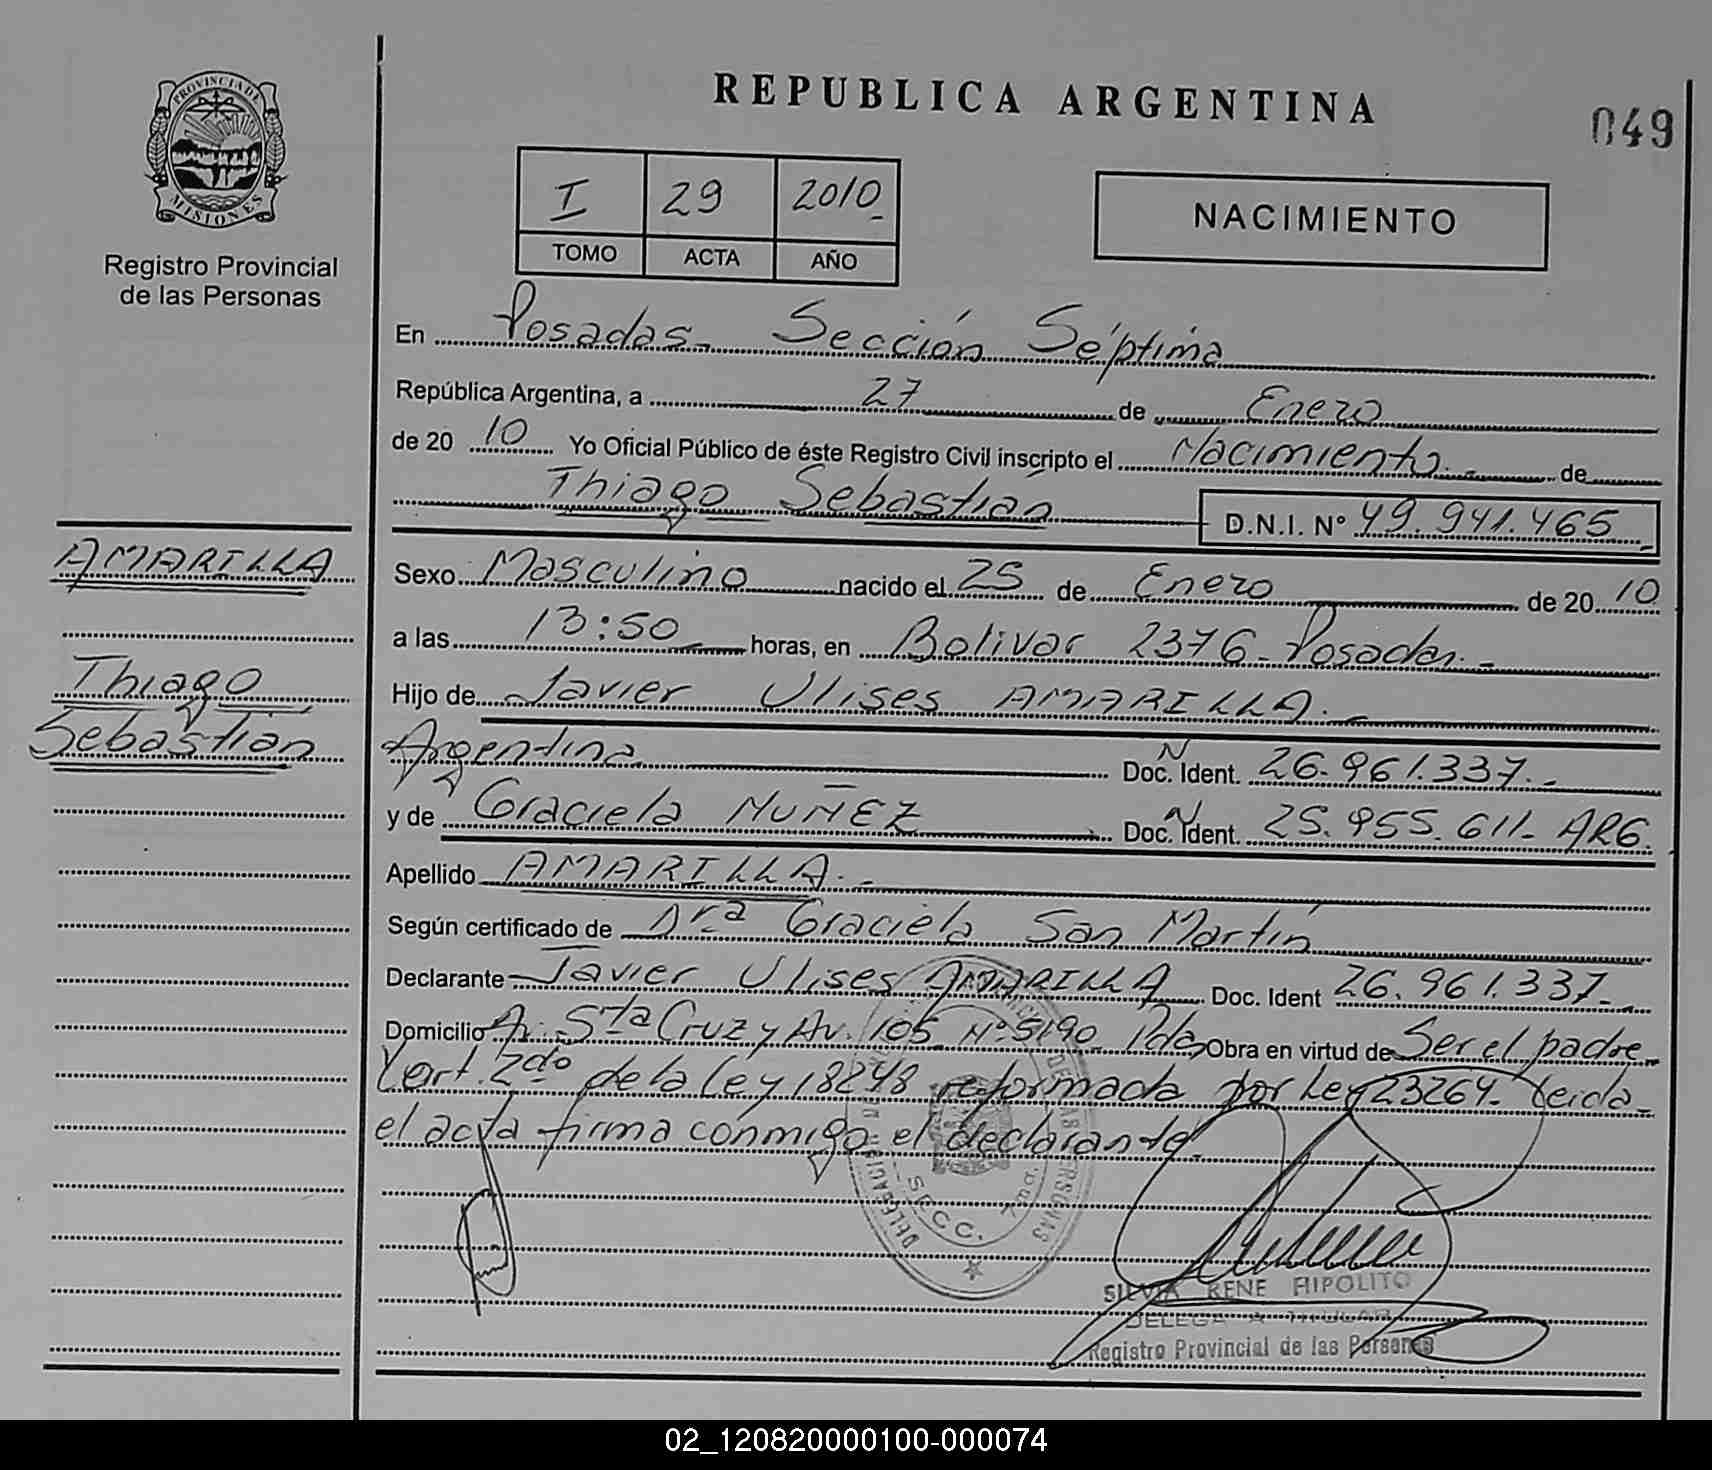 REPUBLICA ARGENTINA
049
PROVINCIA DE
MISIONES
Registro Provincial
de las Personas
I 29 2010
TOMO ACTA AÑO
NACIMIENTO
En Posadas- Sección Séptima
República Argentina, a 27 de Enero
de 20 10 Yo Oficial Público de éste Registro Civil inscripto el Nacimiento.- de
Thiago Sebastián D.N.I. N° 49.941.465
AMARILLA
Thiago
Sebastián
Sexo Masculino nacido el 25 de Enero de 20 10
a las 13:50 horas, en Bolivar 2376- Posadas.-
Hijo de Javier Ulises AMARILLA.-
Argentina Doc. N Ident. 26.961.337.-
y de Graciela NUÑEZ Doc. N Ident. 25.955.611- ARG.
Apellido AMARILLA.-
Según certificado de Dra Graciela San Martín
Declarante Javier Ulises AMARILLA Doc. Ident 26.961.337.-
Domicilio Av. Sta Cruz y Av. 105 N° 5190 Pdas Obra en virtud de Ser el padre
y art. 2do de la Ley 18248 reformada por Ley 23264- Leida
el acta firma conmigo el declarante.
DELEGACION
DE LAS PERSONAS
SECC. 7ma.
SILVIA RENE HIPOLITO
DELEGADA TITULAR
Registro Provincial de las Personas
02_120820000100-000074